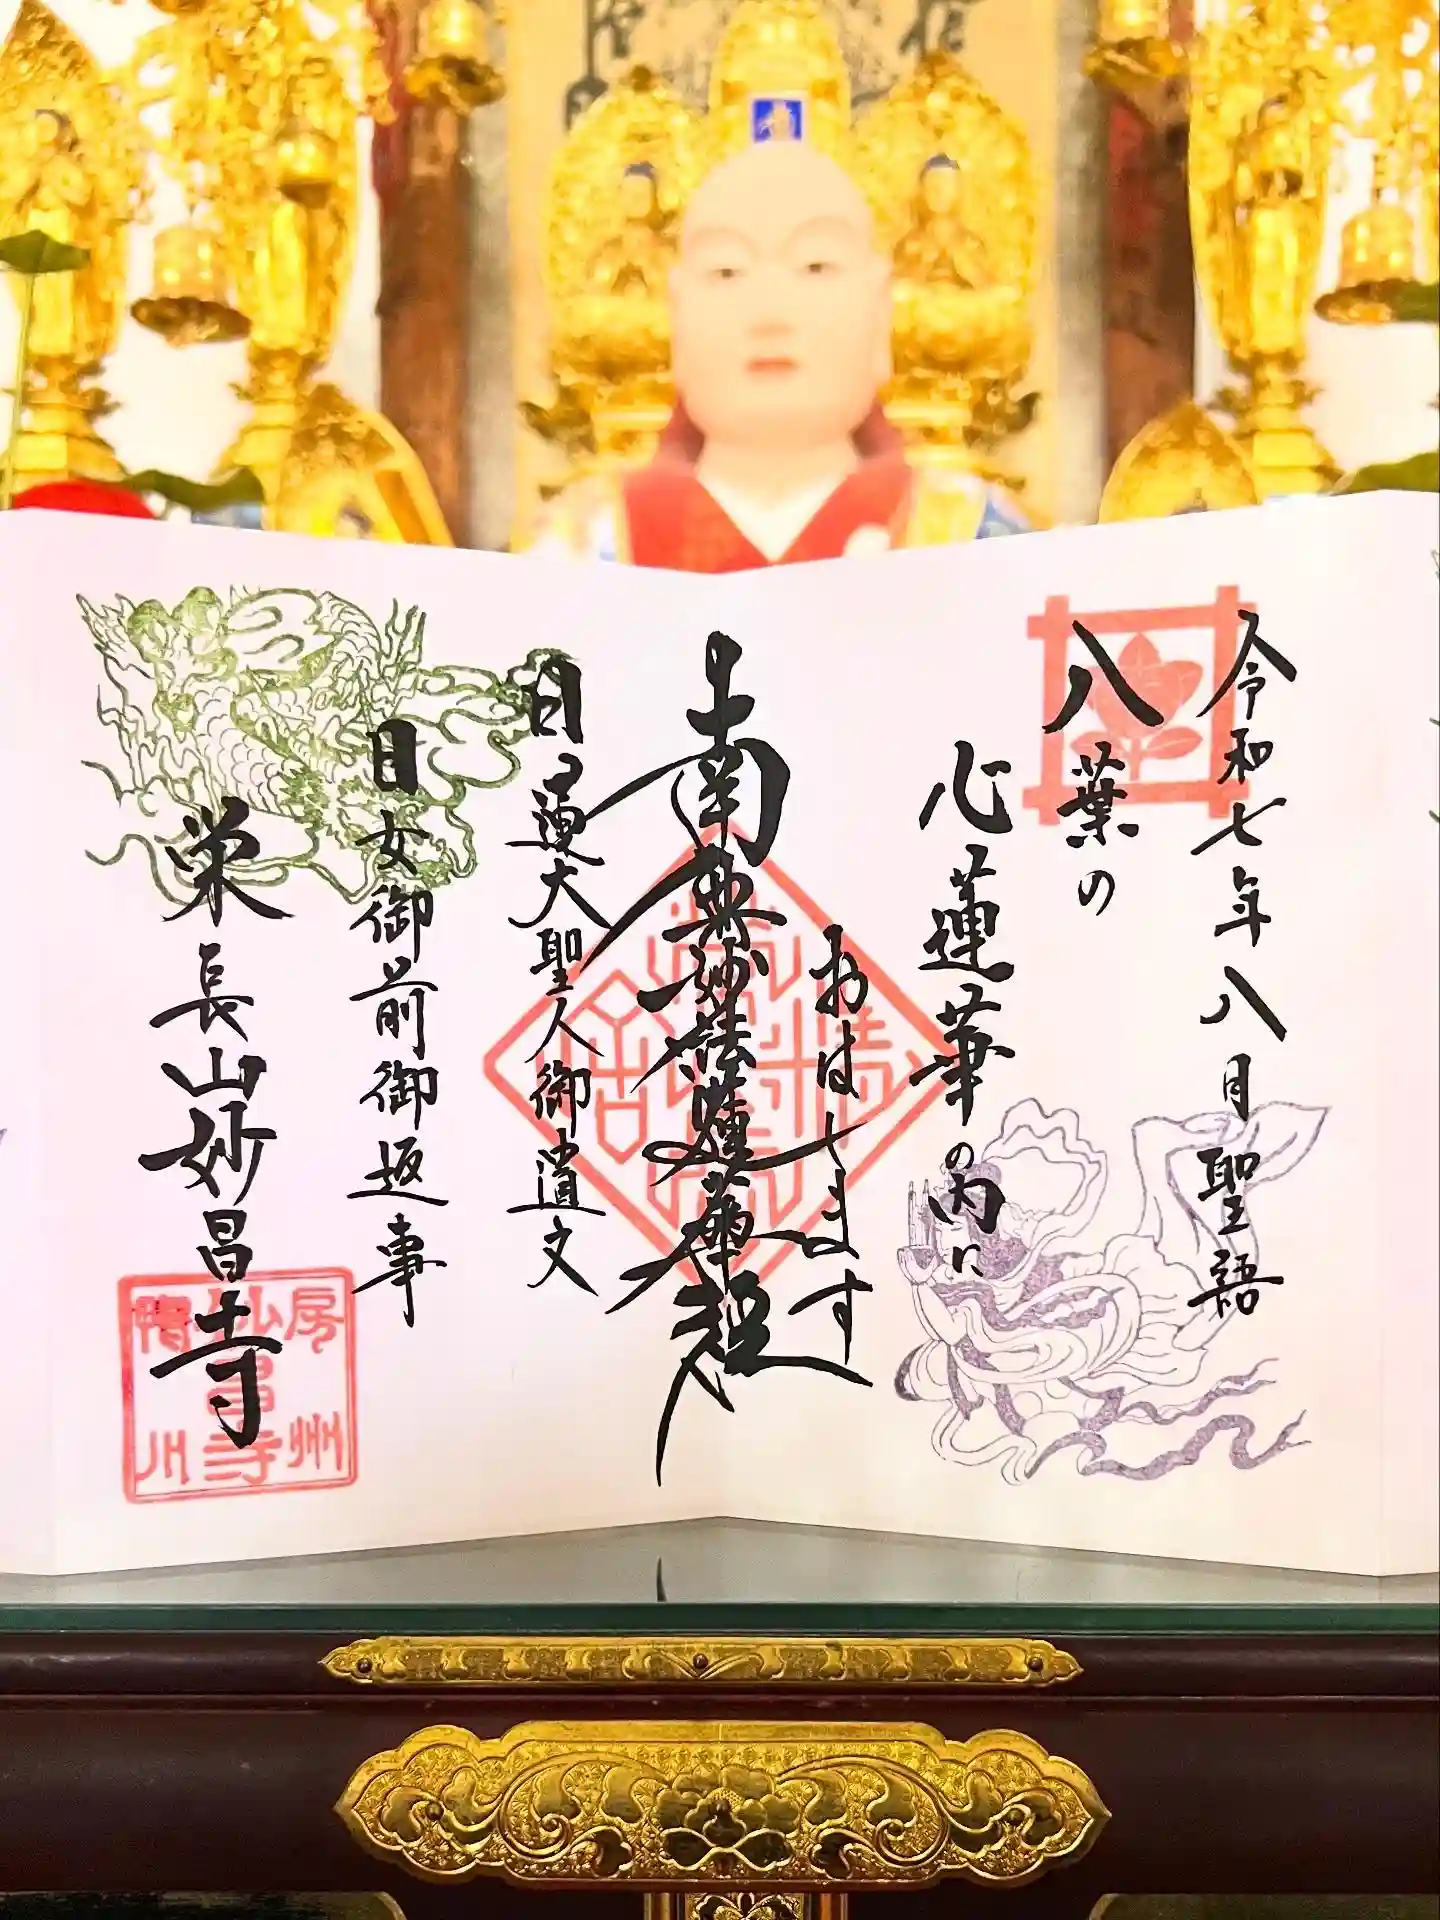 令和七年八月聖語
八葉の
心蓮華の内に
おはします
南無妙法蓮華経
日蓮大聖人御遺文
日女御前御返事
栄長山妙昌寺
房州
妙昌寺
鴨川